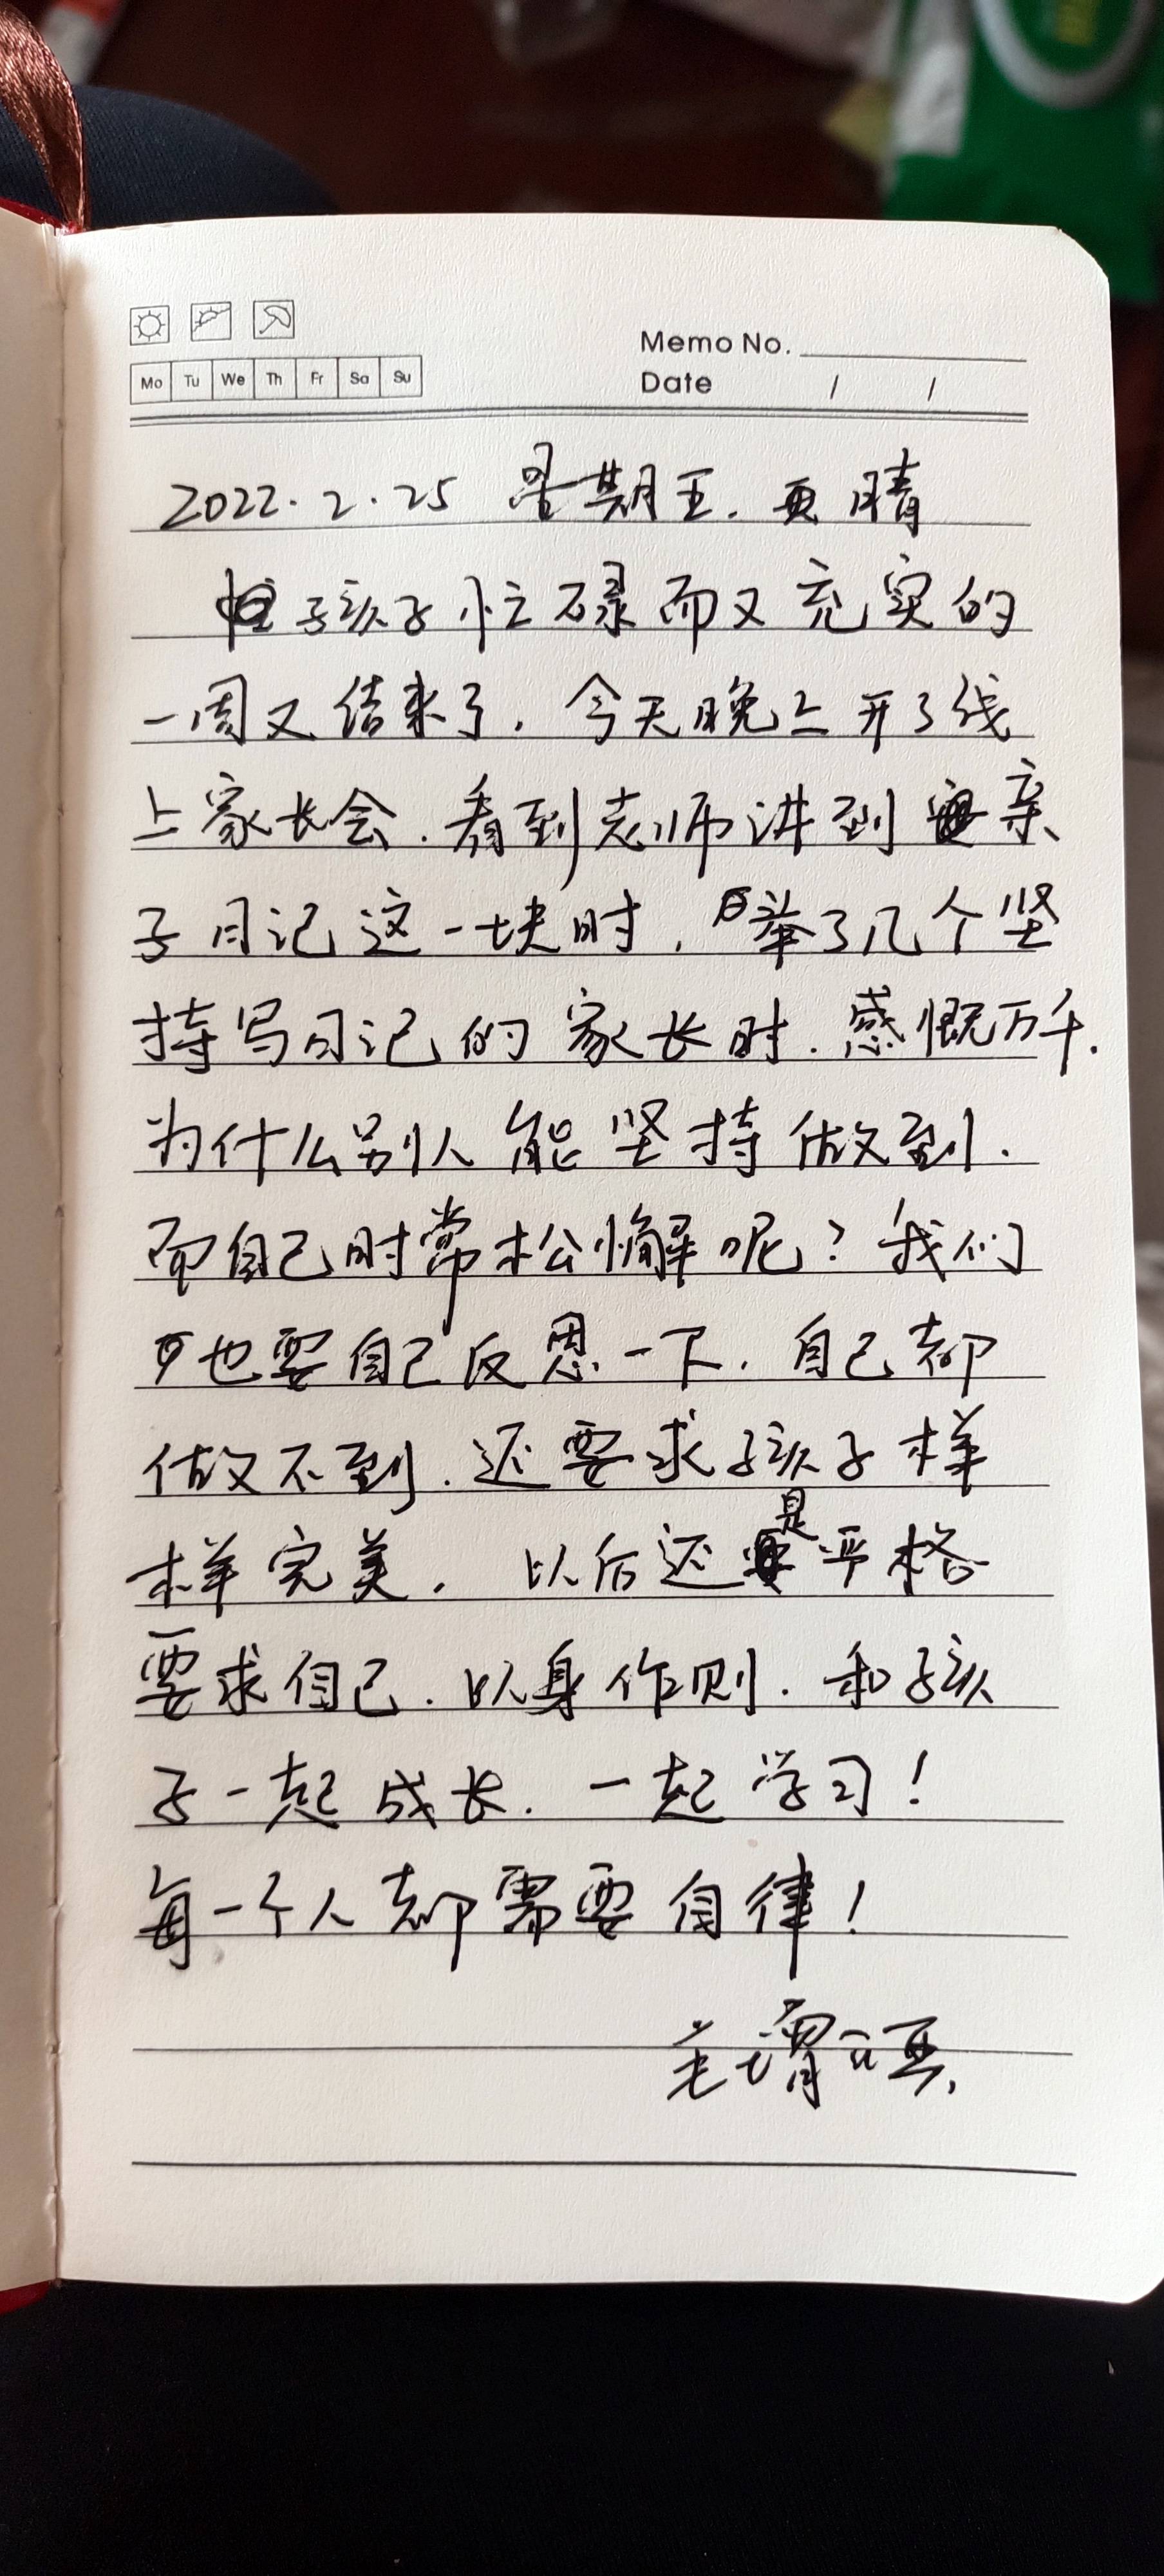 Memo No.
Mo Tu We Th Fr Sa Su
Date / /
2022.2.25 星期五. 晴
孩子忙碌而又充实的
一周又结束了. 今天晚上开了线
上家长会. 看到老师讲到亲
子日记这一块时, 举了几个坚
持写日记的家长时. 感慨万千.
为什么别人能坚持做到.
而自己时常松懈呢? 我们
也要自己反思一下. 自己都
做不到. 还要求孩子样
样完美. 以后还是严格
要求自己. 以身作则. 和孩
子一起成长. 一起学习!
每一个人都需要自律!